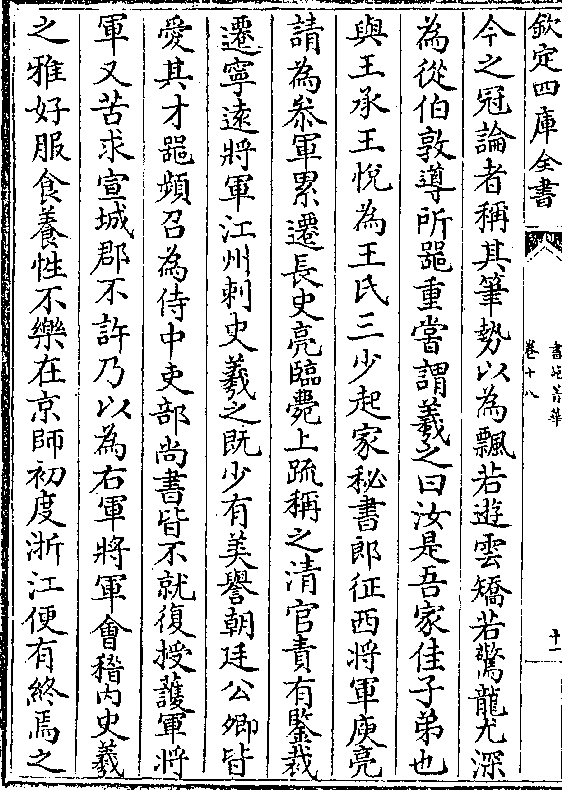 欽定四庫全書
書苑菁華
卷十八
十一
今之冠論者稱其筆勢以為飄若遊雲矯若驚龍尤深
為從伯敦導所噐重嘗謂羲之曰汝是吾家佳子弟也
與王承王悅為王氏三少起家秘書郎征西將軍庾亮
請為叅軍累遷長史亮臨薨上疏稱之清官責有鑒裁
遷寧遠將軍江州刺史羲之既少有美譽朝廷公卿皆
愛其才噐頻召為侍中吏部尚書皆不就復授護軍將
軍又苦求宣城郡不許乃以為右軍將軍會稽内史羲
之雅好服食養性不樂在京師初度浙江便有終焉之